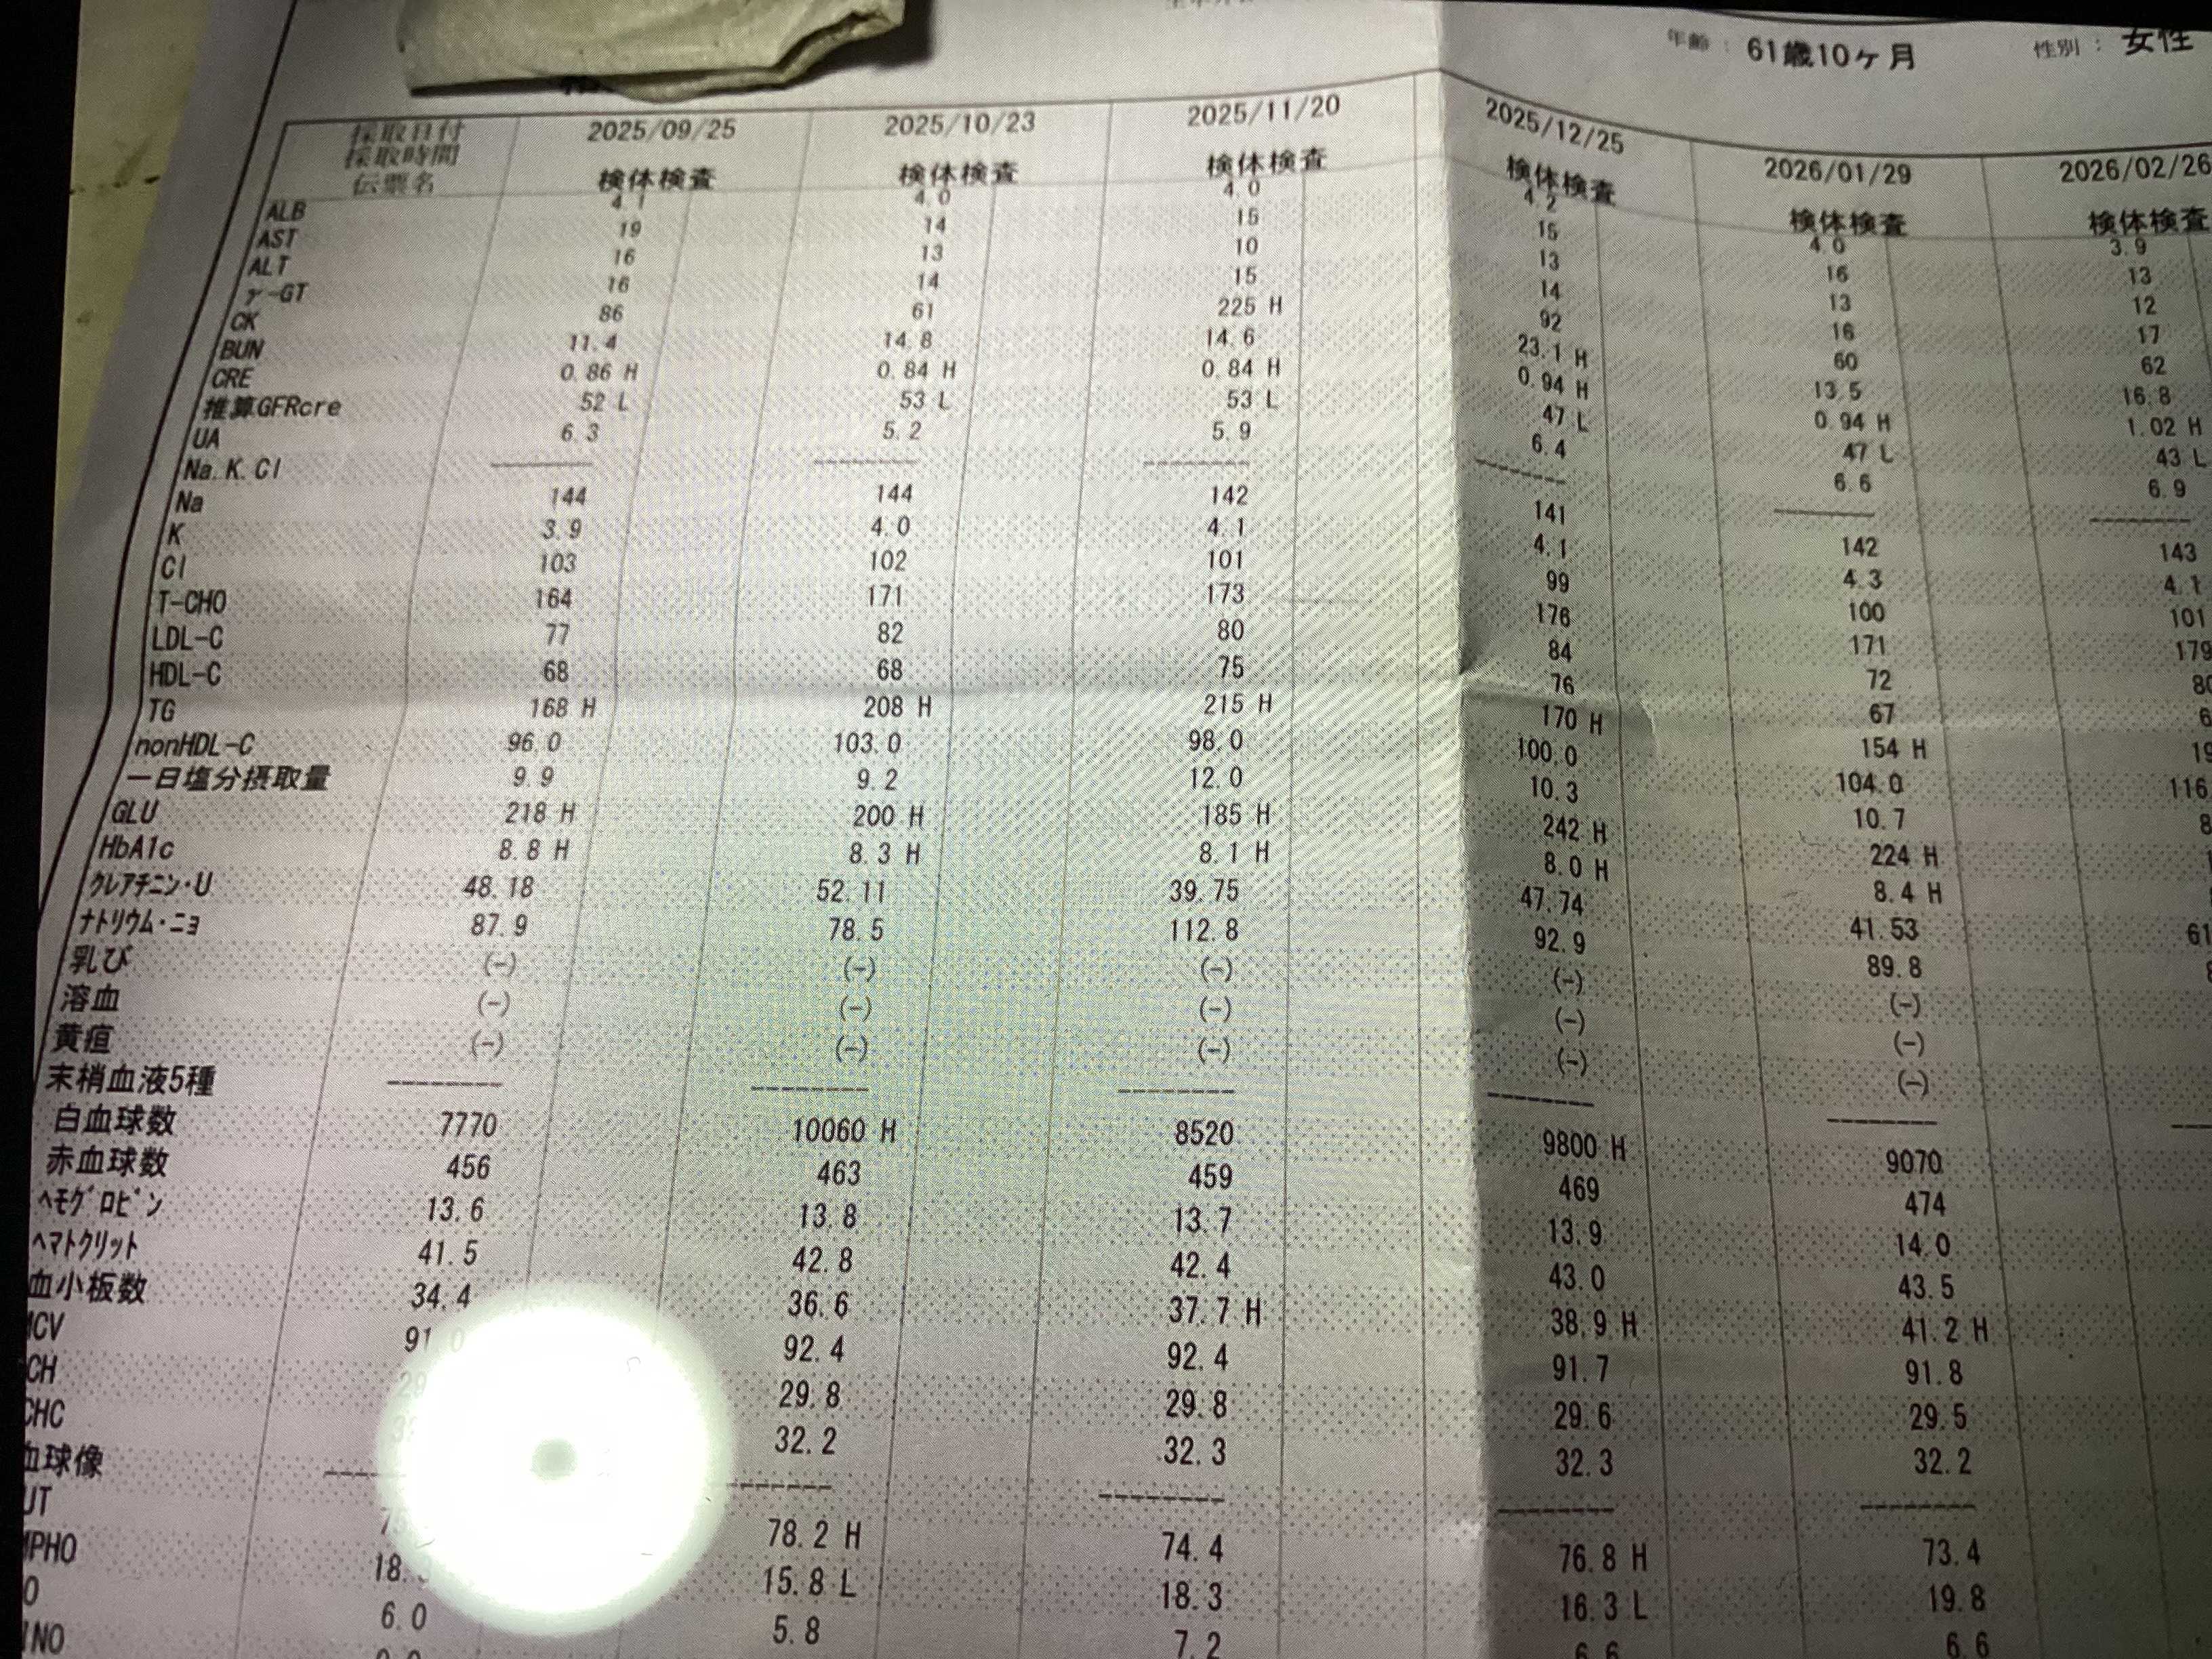 年齢： 61歳10ヶ月 性別： 女性
採取日付 2025/09/25 2025/10/23 2025/11/20 2025/12/25 2026/01/29 2026/02/26
採取時間
伝票名 検体検査 検体検査 検体検査 検体検査 検体検査 検体検査
ALB 4.1 4.0 4.0 4.2 4.0 3.9
AST 19 14 15 15 16 13
ALT 16 13 10 13 13 12
γ-GT 16 14 15 14 16 17
CK 86 61 225 H 92 60 62
BUN 11.4 14.8 14.6 23.1 H 13.5 16.8
CRE 0.86 H 0.84 H 0.84 H 0.94 H 0.94 H 1.02 H
推算GFRcre 52 L 53 L 53 L 47 L 47 L 43 L
UA 6.3 5.2 5.9 6.4 6.6 6.9
Na.K.Cl -------- -------- -------- -------- -------- --------
Na 144 144 142 141 142 143
K 3.9 4.0 4.1 4.1 4.3 4.1
Cl 103 102 101 99 100 101
T-CHO 164 171 173 176 171 179
LDL-C 77 82 80 84 72
HDL-C 68 68 75 76 67
TG 168 H 208 H 215 H 170 H 154 H
nonHDL-C 96.0 103.0 98.0 100.0 104.0 116.
一日塩分摂取量 9.9 9.2 12.0 10.3 10.7
GLU 218 H 200 H 185 H 242 H 224 H
HbA1c 8.8 H 8.3 H 8.1 H 8.0 H 8.4 H
クレアチニン・U 48.18 52.11 39.75 47.74 41.53 61
ナトリウム・ニョ 87.9 78.5 112.8 92.9 89.8
乳び (-) (-) (-) (-) (-)
溶血 (-) (-) (-) (-) (-)
黄疸 (-) (-) (-) (-) (-)
末梢血液5種 -------- -------- -------- -------- --------
白血球数 7770 10060 H 8520 9800 H 9070
赤血球数 456 463 459 469 474
ヘモグロビン 13.6 13.8 13.7 13.9 14.0
ヘマトクリット 41.5 42.8 42.4 43.0 43.5
血小板数 34.4 36.6 37.7 H 38.9 H 41.2 H
MCV 91.0 92.4 92.4 91.7 91.8
CH 29.8 29.8 29.6 29.5
CHC 32.2 32.3 32.3 32.2
血球像 -------- -------- -------- --------
UT 78.2 H 74.4 76.8 H 73.4
MPHO 18. 15.8 L 18.3 16.3 L 19.8
O 6.0 5.8 7.2 6.6 6.6
INO